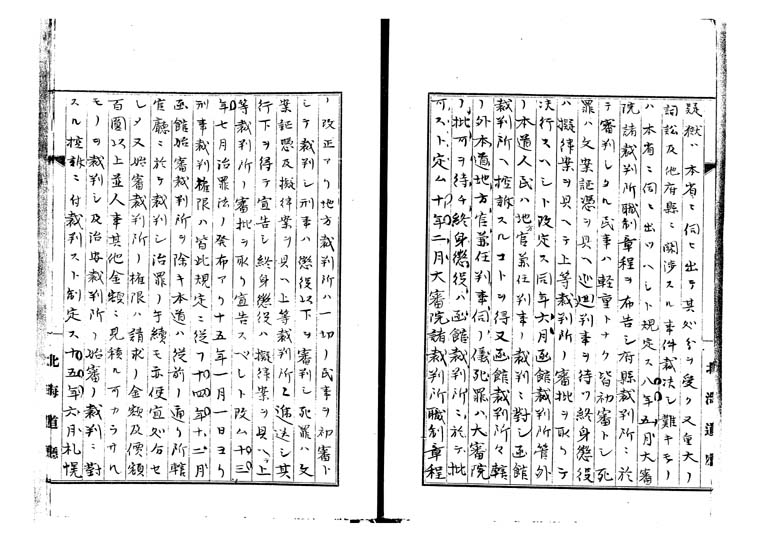 疑獄ハ本省ニ伺ヒ出テ其処分ヲ受ク又重大ノ
詞訟及他府縣ニ関渉スル事件裁決シ難キモノ
ハ本省ニ伺ヒ出ツヘシト規定ス八年五月大審
院諸裁判所職制章程ヲ布告シ府縣裁判所ニ於
テ審判シタル民事ハ軽重トナク皆初審トシ死
罪ハ文案証憑ヲ具ヘ巡廻判事ヲ待ツ終身懲役
ハ擬律案ヲ具ヘテ上等裁判所ノ審批ヲ取リテ
決行スヘシト改定ス同年六月函館裁判所管外
ノ本道人民ハ地方官兼任判事ノ裁判ニ對シ函館
裁判所ヘ控訴スルコトヲ得又函館裁判所々轄
ノ外本道地方官兼任判事伺ノ儀死罪ハ大審院
ノ批可ヲ待チ終身懲役ハ函館裁判所ニ於テ批
可スト定ム十年二月大審院諸裁判所職制章程
北海道廳
ノ改正アリ地方裁判所ハ一切ノ民事ヲ初審ト
シテ裁判シ刑事ハ懲役以下ヲ審判シ死罪ハ文
案証憑及擬律案ヲ具ヘ上等裁判所ニ進送シ其
行下ヲ得テ宣告シ終身懲役ハ擬律案ヲ具ヘ上
等裁判所ノ審批ヲ取リ宣告スベシト改ム十三
年七月治罪法ノ発布アリ十五年一月一日ヨリ
刑事裁判権限ハ皆此規定ニ従フ十四年十二月
函館始審裁判所ヲ除キ本道ハ従前ノ通リ所轄
官廳ニ於テ裁判シ治罪ノ手續モ亦便宜処分セ
シメ又始審裁判所ノ権限ハ請求ノ金額及價額
百圓以上並人事其他金額ニ見積ル可カラサル
モノヲ裁判シ及治安裁判所ノ始審ノ裁判ニ對
スル控訴ニ付裁判スト制定ス十五年六月札幌
北海道廳